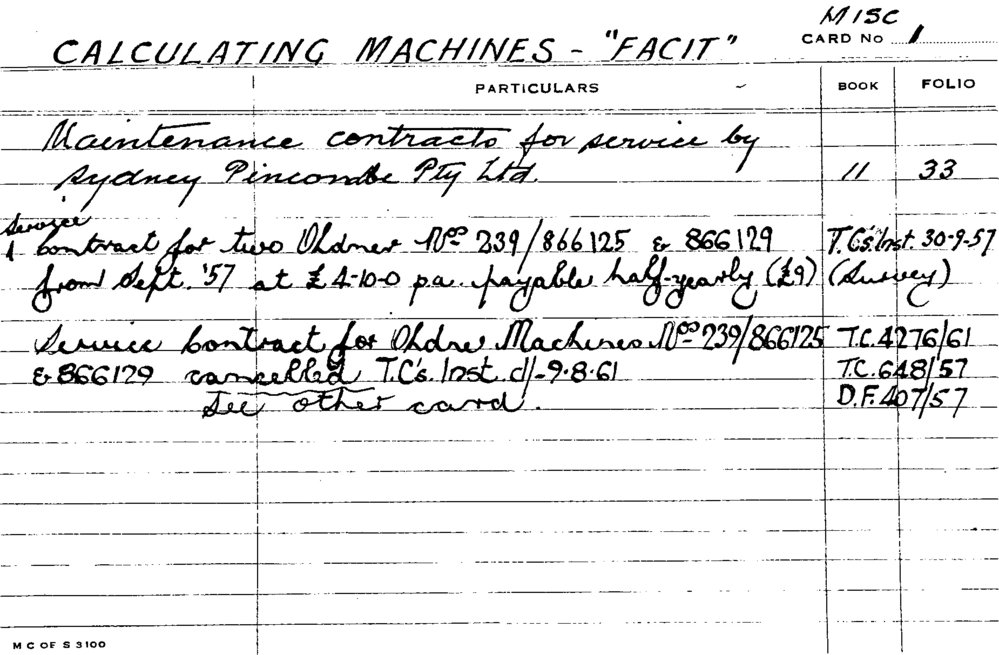 MISC
CALCULATING MACHINES - "FACIT" CARD No 1
PARTICULARS BOOK FOLIO
Maintenance contracts for service by
Sydney Pincombe Pty Ltd. 11 33
Service
1 Contract for two Ohdner Nos 239/866125 & 866129 T.Cs. Inst. 30-9-57
from Sept. '57 at £4-10-0 pa. payable half-yearly (£9) (Survey)
Service Contract for Ohdner Machines Nos 239/866125 T.C. 4276/61
& 866129 cancelled T.C's. Inst. d/- 9.8.61 T.C. 648/57
See other card. D.F. 407/57
M C OF S 3100